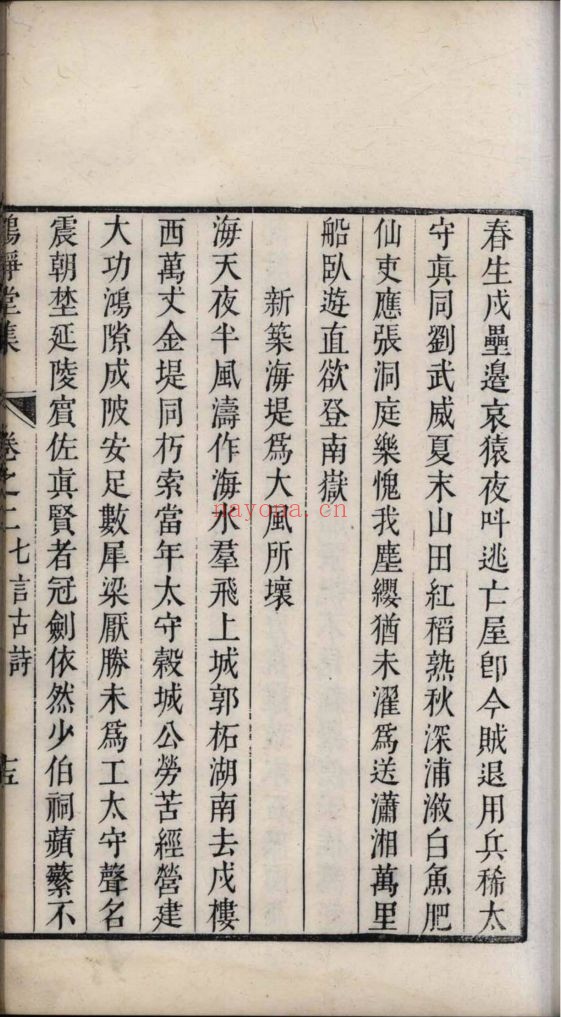 春生戍壘邊哀猿夜叫逃亡屋卽今賊退用兵稀太
守眞同劉武威夏末山田紅稻熟秋深浦溆白魚肥
仙吏應張洞庭樂愧我塵纓猶未濯爲送瀟湘萬里
船臥遊直欲登南嶽
新築海堤爲大風所壞
海天夜半風濤作海水羣飛上城郭柘湖南去戍樓
西萬丈金堤同朽索當年太守穀城公勞苦經營建
大功鴻隙成陂安足數犀梁厭勝未爲工太守聲名
震朝埜延陵賔佐眞賢者冠劍依然少伯祠蘋蘩不
靜堂集 卷之二 七言古詩 十五
nayona.cn